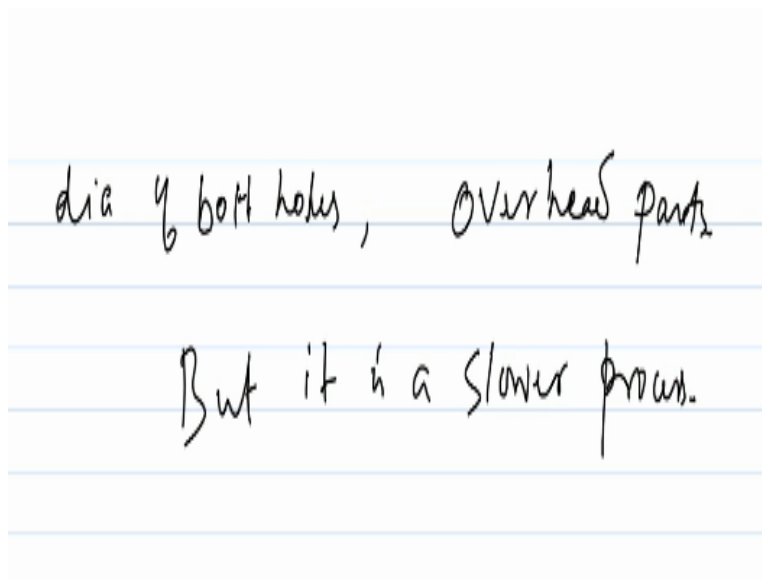 dia of bolt holes, overhead parts
But it is a slower process.